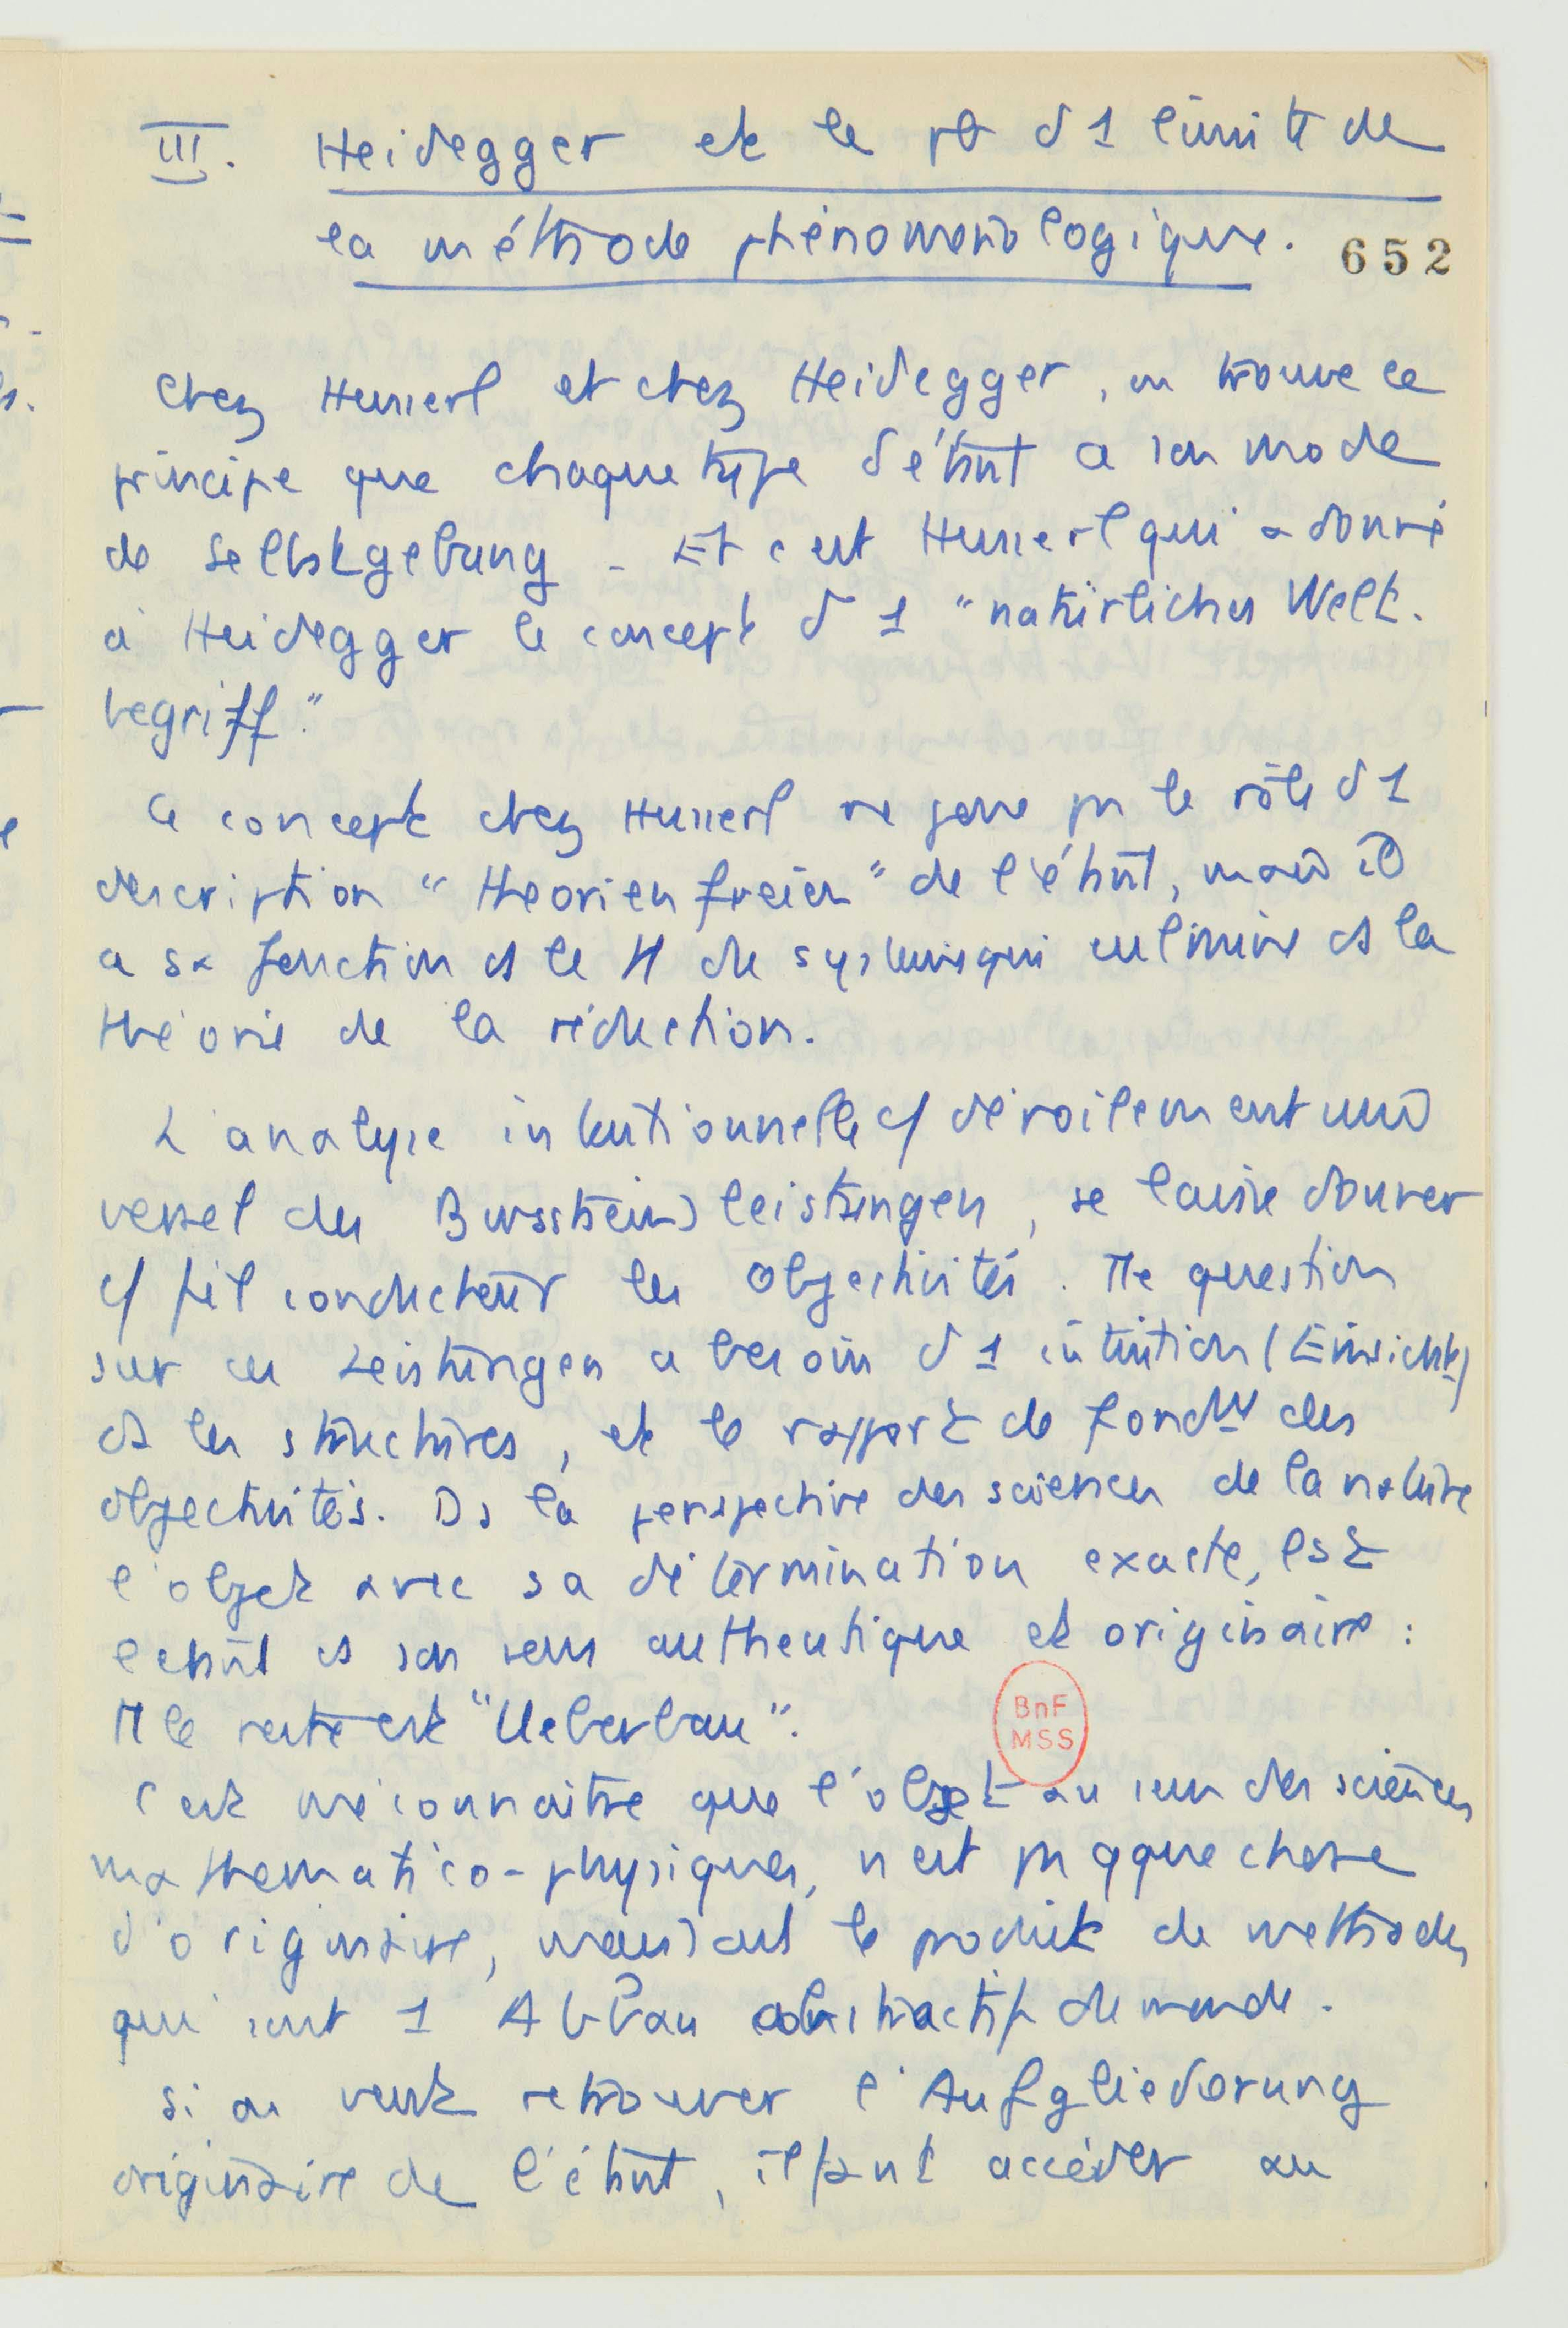 III. Heidegger et le pb d 1 limite de
la méthode phénoménologique.
652
Chez Husserl et chez Heidegger, on trouve le
principe que chaque type d'étant a son mode
de Selbstgebung - Et c'est Husserl qui a donné
à Heidegger le concept d 1 "natürlicher Welt-
begriff."
Ce concept chez Husserl ne joue pas le rôle d 1
description "theorienfreier" de l'étant, mais il
a sa fonction ds le M de système qui culmine ds la
théorie de la réduction.
L'analyse intentionnelle c/ dévoilement uni
versel des Bwsstseinsleistungen, se laisse donner
c/ fil conducteur les objectivités. Tte question
sur ces Leistungen a besoin d 1 intuition (Einsicht)
ds les structures, et le rapport de fondmt des
objectivités. Ds la perspective des sciences de la nature
l'objet avec sa détermination exacte, est
l'etant ds son sens authentique et originaire :
Tt le reste est "Ueberbau".
C'est méconnaitre que l'objet au sens des sciences
mathematico-physiques, n'est pas qque chose
d'originaire, mais est le produit de methodes
qui sont 1 Abbau abstractif du monde.
Si on veut retrouver l'Aufgliederung
originaire de l'étant, il faut accéder au
BnF
MSS